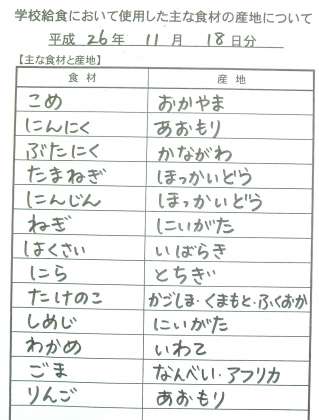 学校給食において使用した主な食材の産地について
平成 26 年 11 月 18 日分
【主な食材と産地】
食材 産地
こめ おかやま
にんにく あおもり
ぶたにく かながわ
たまねぎ ほっかいどう
にんじん ほっかいどう
ねぎ にいがた
はくさい いばらき
にら とちぎ
たけのこ かごしま・くまもと・ふくおか
しめじ にいがた
わかめ いわて
ごま なんべい・アフリカ
りんご あおもり